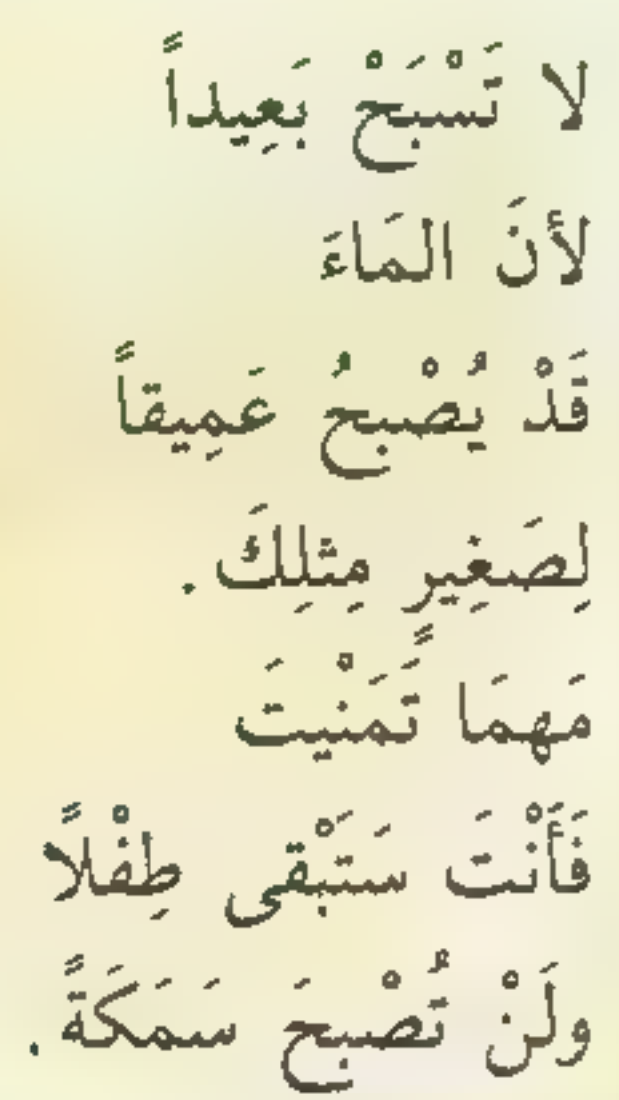 لا تَسْبَحْ بَعِيداً
لأنَ المَاءَ
قَدْ يُصْبحُ عَمِيقاً
لِصَغِيرٍ مِثلِكَ .
مَهمَا تَمَنْيتَ
فَأَنْتَ سَتَبْقى طِفْلاً
ولَنْ تُصْبحَ سَمَكَةً .